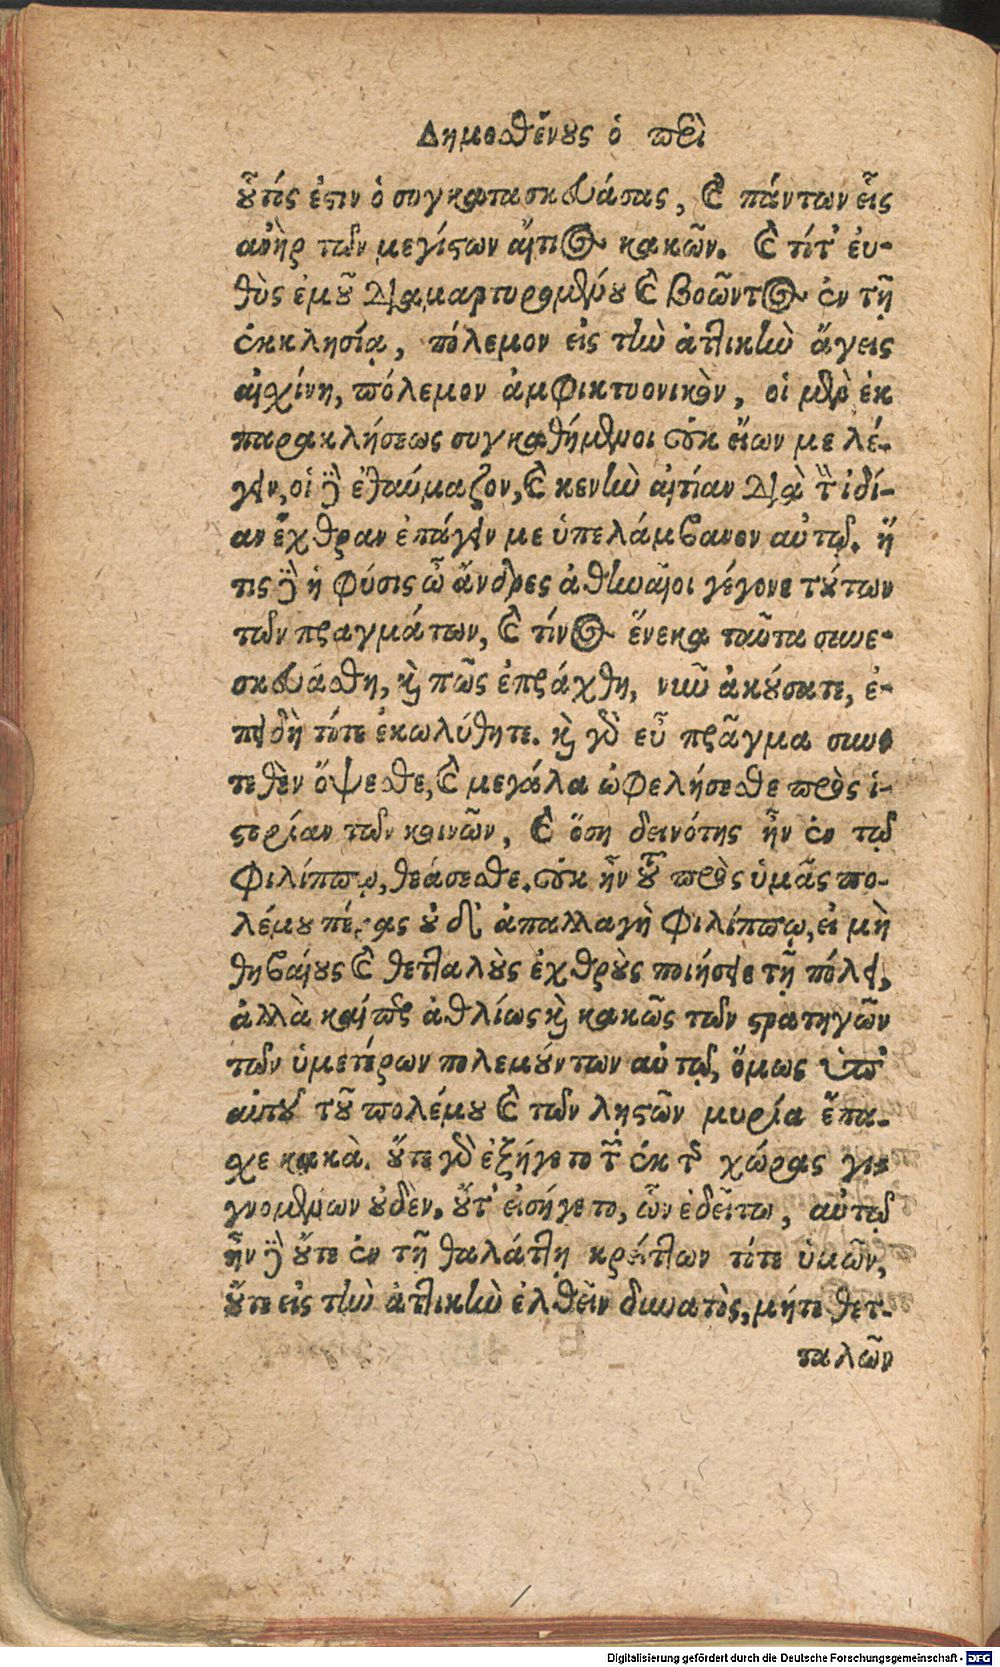 Δημοσθένους ὁ περὶ
οὗτός ἐστιν ὁ συγκατασκευάσας, καὶ πάντων εἷς
ἀνὴρ τῶν μεγίστων αἴτιος κακῶν. καὶ τότ' εὐ-
θὺς ἐμοῦ διαμαρτυρομένου καὶ βοῶντος ἐν τῇ
ἐκκλησίᾳ, πόλεμον εἰς τὴν ἀττικὴν ἄγεις
αἰσχίνη, πόλεμον ἀμφικτυονικὸν, οἱ μὲν ἐκ
παρακλήσεως συγκαθήμενοι οὐκ εἴων με λέ-
γειν, οἱ δὲ ἐθαύμαζον, καὶ κενὴν αἰτίαν διὰ τὴν ἰδί-
αν ἔχθραν ἐπάγειν με ὑπελάμβανον αὐτῷ. ἥ
τις δὲ ἡ φύσις ὦ ἄνδρες ἀθηναῖοι γέγονε τούτων
τῶν πραγμάτων, καὶ τίνος ἕνεκα ταῦτα συνε-
σκευάσθη, καὶ πῶς ἐπράχθη, νῦν ἀκούσατε, ἐ-
πειδὴ τότε ἐκωλύθητε. καὶ γὰρ εὖ πρᾶγμα συν
τεθὲν ὄψεσθε, καὶ μεγάλα ὠφελήσεσθε πρὸς ἱ-
στορίαν τῶν κοινῶν, καὶ ὅση δεινότης ἦν ἐν τῷ
Φιλίππῳ, θεάσεσθε. οὐκ ἦν τοῦ πρὸς ὑμᾶς πο-
λέμου πέρας οὐδ' ἀπαλλαγὴ Φιλίππῳ, εἰ μὴ
θηβαίους καὶ θετταλοὺς ἐχθροὺς ποιήσειε τῇ πόλει,
ἀλλὰ καίπερ ἀθλίως καὶ κακῶς τῶν στρατηγῶν
τῶν ὑμετέρων πολεμούντων αὐτῷ, ὅμως ὑπ'
αὐτοῦ τοῦ πολέμου καὶ τῶν λῃστῶν μυρία ἔπα-
σχε κακὰ. οὔτε γὰρ ἐξήγετο τῶν ἐκ τῆς χώρας γι
γνομένων οὐδὲν, οὔτ' εἰσήγετο, ὧν ἐδεῖτο, αὐτῷ
ἦν δὲ οὔτε ἐν τῇ θαλάττῃ κρείττων τότε ὑμῶν,
οὔτε εἰς τὴν ἀττικὴν ἐλθεῖν δυνατὸς, μήτε θετ-
ταλῶν
Digitalisierung gefördert durch die Deutsche Forschungsgemeinschaft - DFG